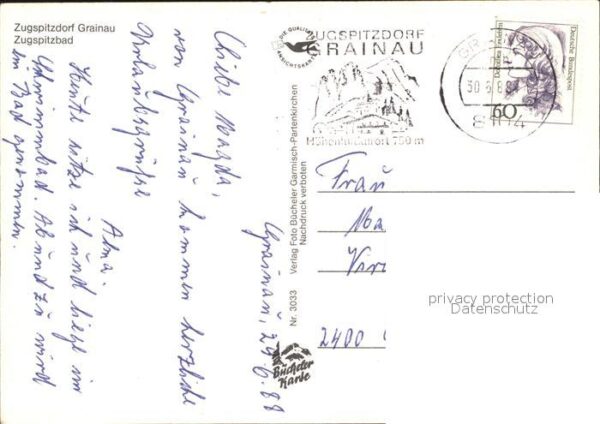 Zugspitzdorf Grainau
Zugspitzbad
Grainau, 29.6.88
Liebe Magda,
von Grainau kommen herzliche
Urlaubsgrüße
Alma.
Heute sitze ich und liege im
Schwimmbad. Ab und zu wird
ein Bad genommen.
Nr. 3033
Verlag Foto Bücheler Garmisch-Partenkirchen
Nachdruck verboten
Bücheler
Karte
DIE QUALITÄTS
ANSICHTSKARTE
ZUGSPITZDORF
GRAINAU
Höhenluftkurort 750 m
30.6.88
8104
Dorothea Erxleben
Deutsche Bundespost
60
Frau
Ma
Vir
2400
privacy protection
Datenschutz